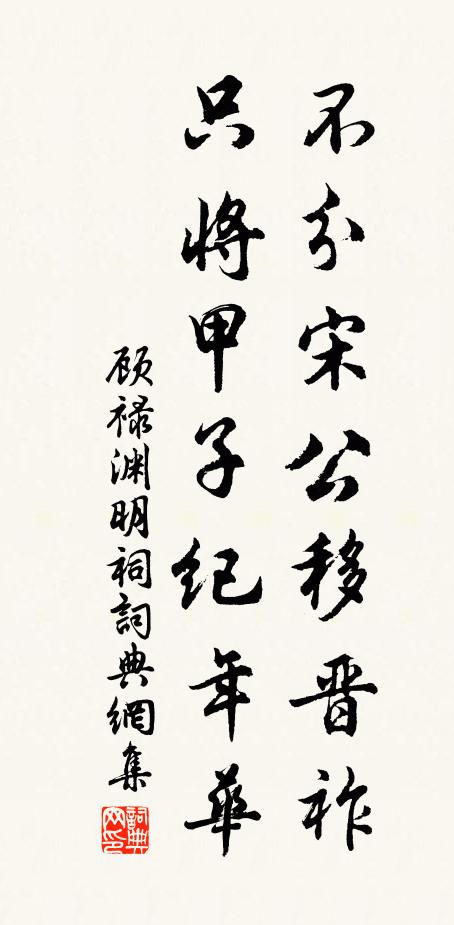 不分宋公移晋祚
只將甲子纪年華
顾禄渊明祠詞典網集
詞典网印